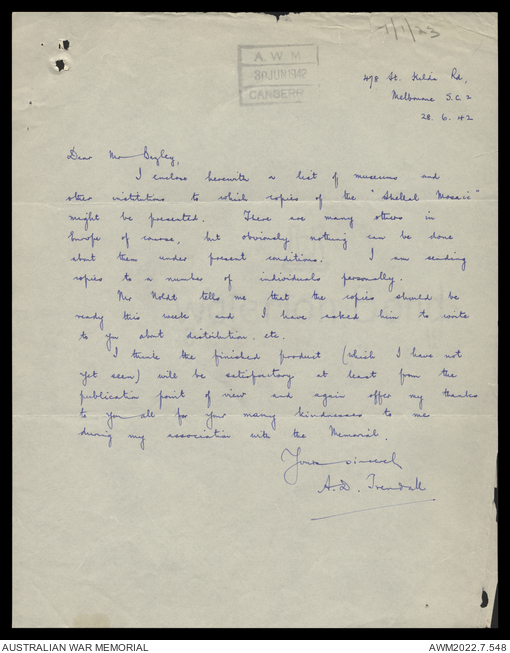 7/1/23
A.W.M
30 JUN 1942
CANBERR
478 St. Kilda Rd,
Melbourne S.C.2
28. 6. 42
Dear Mr Bazley,
I enclose herewith a list of museums and
other institutions to which copies of the "Shellal Mosaic"
might be presented. There are many others in
Europe of course, but obviously nothing can be done
about them under present conditions. I am sending
copies to a number of individuals personally.
Mr Noldt tells me that the copies should be
ready this week and I have asked him to write
to you about distribution etc.
I think the finished product (which I have not
yet seen) will be satisfactory at least from the
publication point of view and again offer my thanks
to you all for your many kindnesses to me
during my association with the Memorial.
Yours sincerely
A.D. Trendall
AUSTRALIAN WAR MEMORIAL
AWM2022.7.548